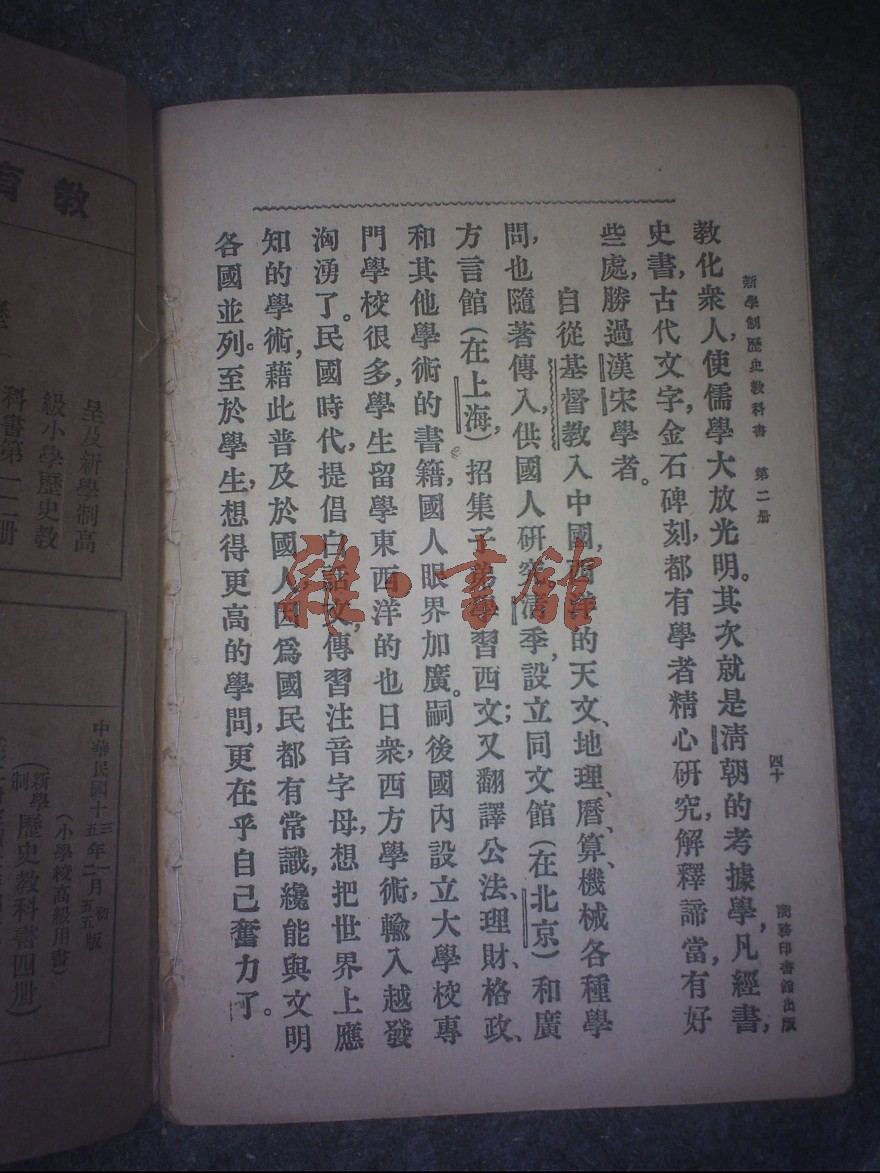 新學制歷史教科書 第二册
四十
商務印書館出版
教化衆人,使儒學大放光明。其次就是清朝的考據學,凡經書,
史書,古代文字,金石碑刻,都有學者精心研究,解釋諦當,有好
些處,勝過漢宋學者。
自從基督教入中國,西洋的天文、地理、曆、算、機械各種學
問,也隨著傳入,供國人研究。清季,設立同文館(在北京)和廣
方言館(在上海),招集子弟學習西文;又翻譯公法、理財、格政、
和其他學術的書籍,國人眼界加廣。嗣後國內設立大學校專
門學校很多,學生留學東西洋的也日衆,西方學術,輸入越發
洶湧了。民國時代,提倡白話文,傳習注音字母,想把世界上應
知的學術,藉此普及於國人,因爲國民都有常識,纔能與文明
各國並列。至於學生,想得更高的學問,更在乎自己奮力了。
雜·書館
教育
呈及新學制高
級小學歷史教
科書第一二册
中華民國十三年一月初版
(小學校高級用書)
(新學制歷史教科書四册)